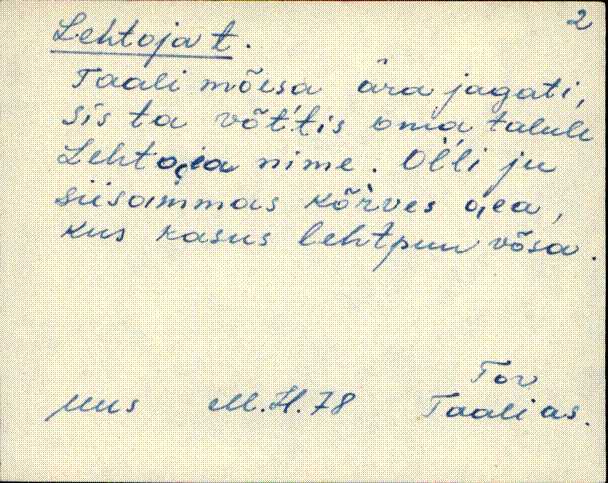 2
Lehtoja t.
Taali mõisa ära jagati,
sīs ta võt́tis oma talule
Lehtoi̯a nime. Oĺli ju
siisammas kõŕves ai̯a,
kus kasus lehtpuu võsa.
uus M.H.78 Tor
Taali as.